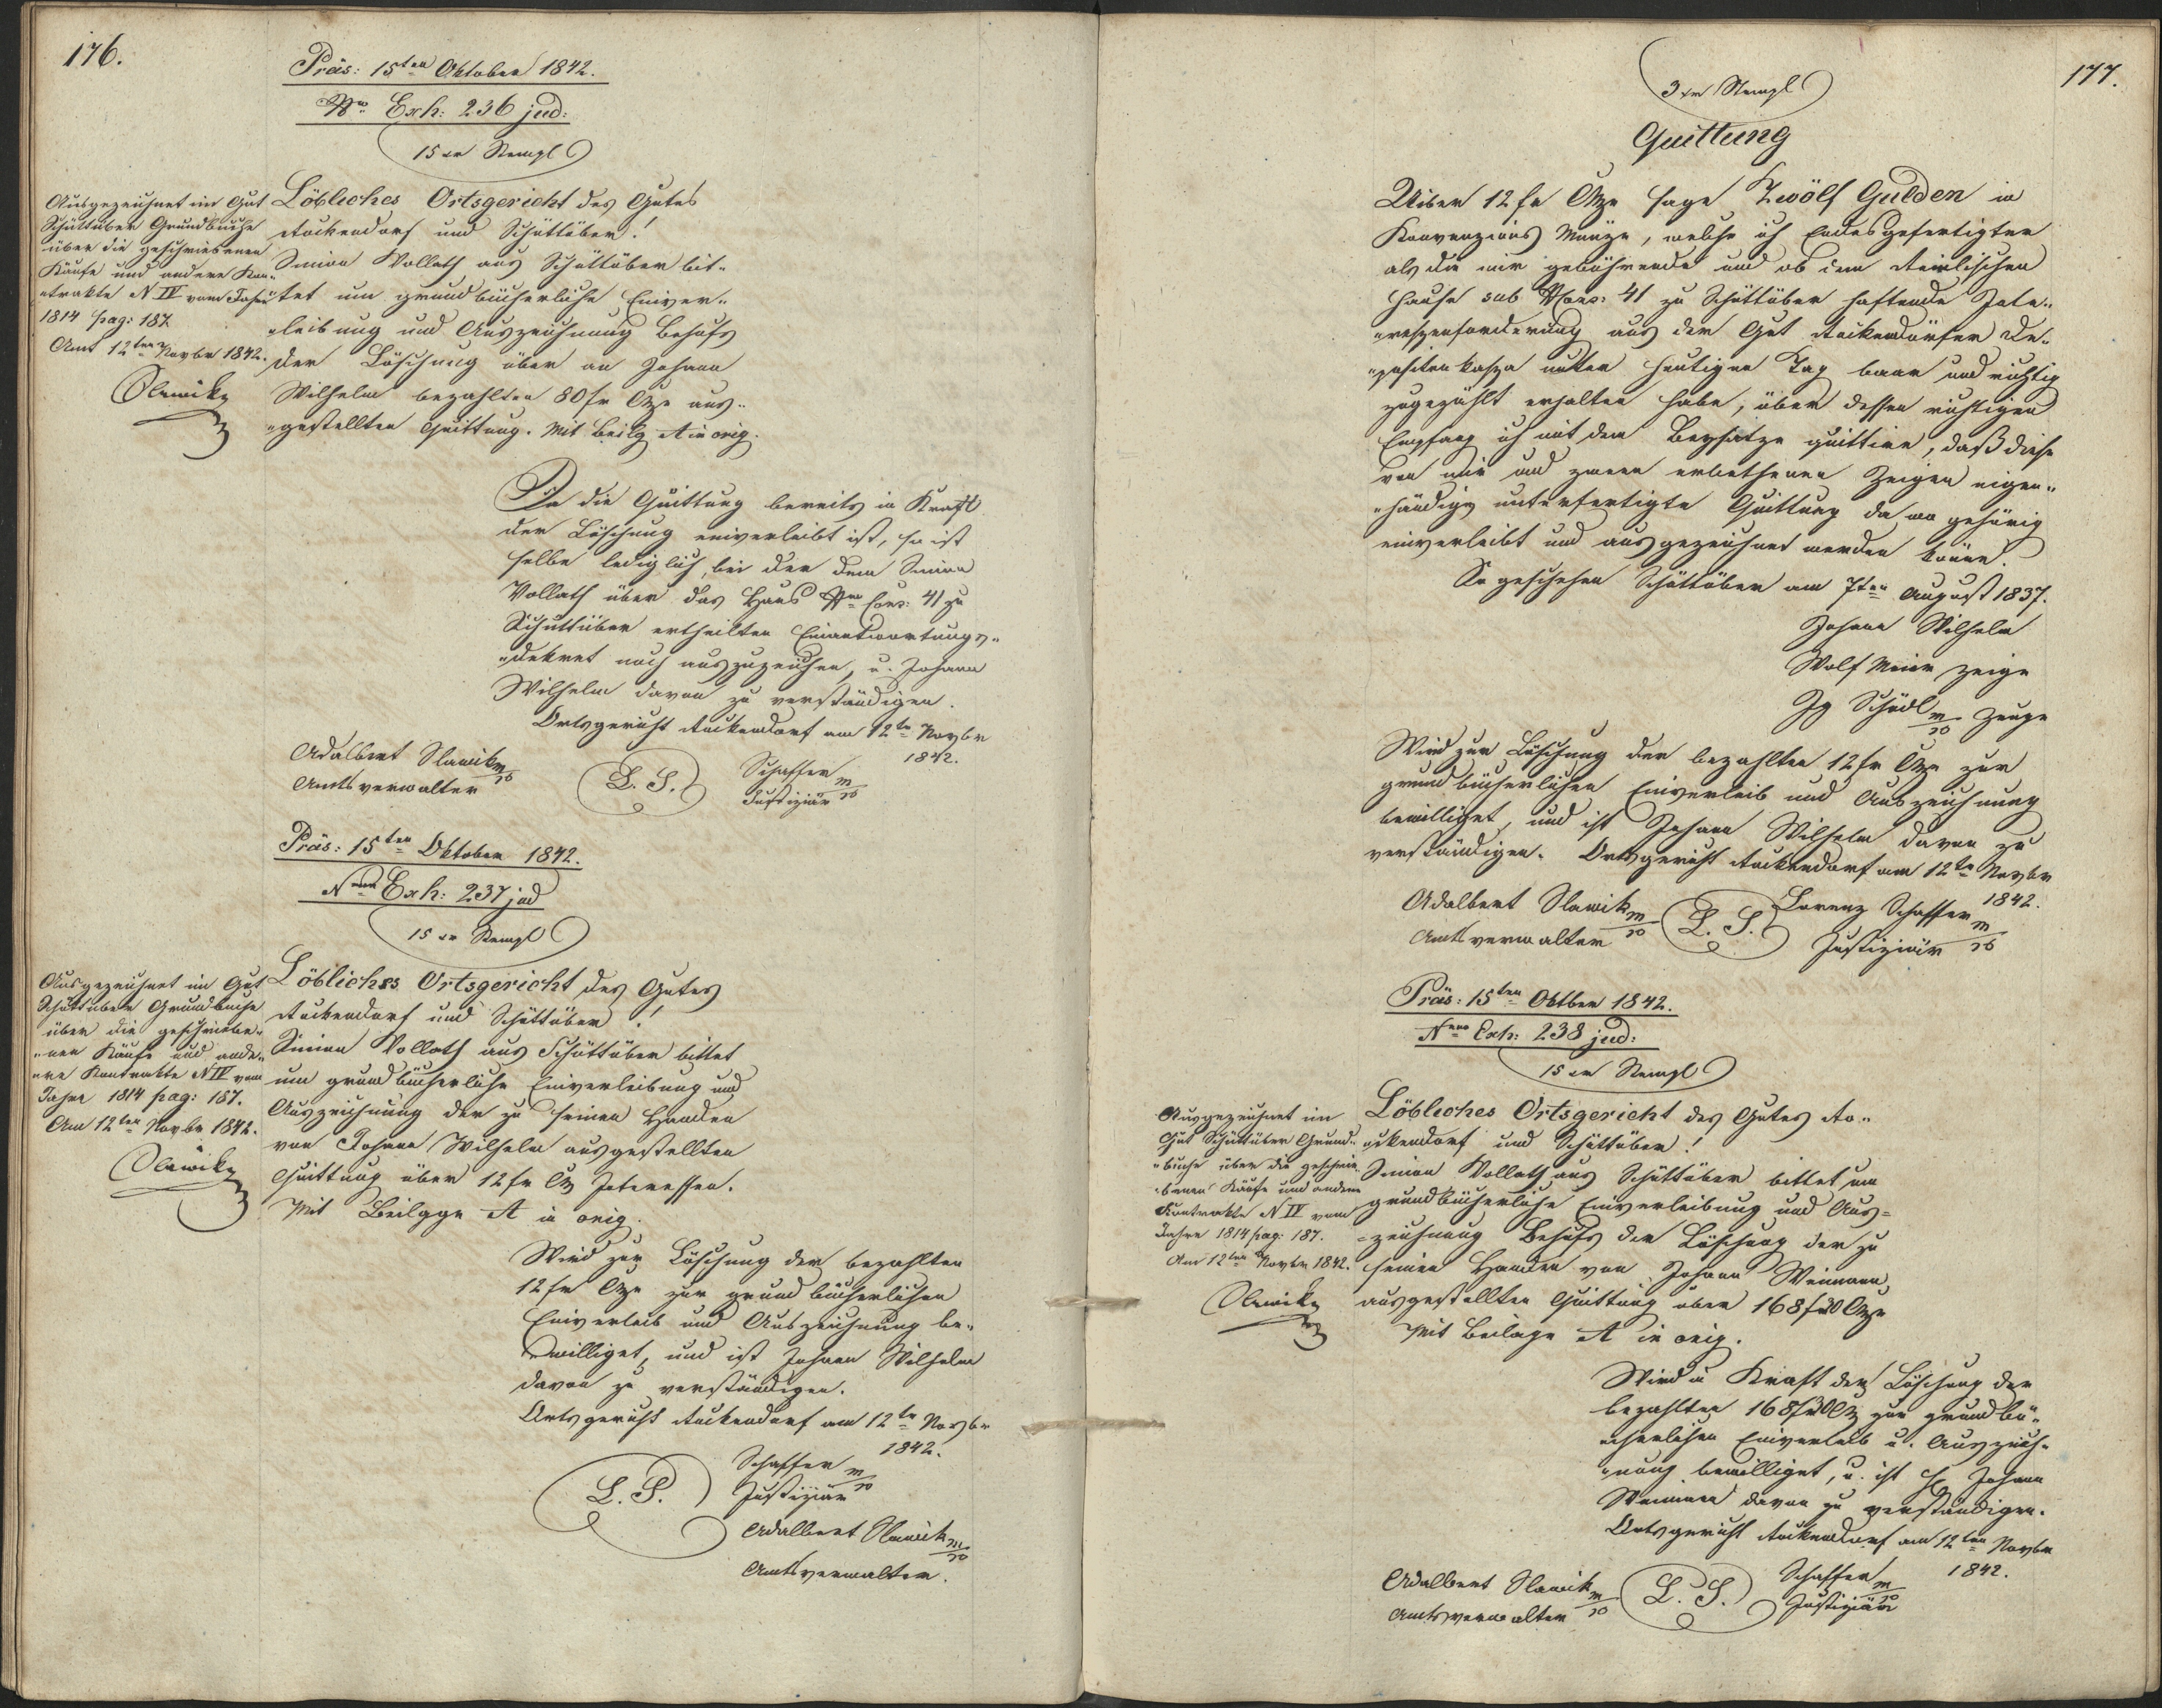 176.
Präs: 15ten Oktober 1842.
Nro Exh: 236 jud:
15 xr Stempl
Ausgezeichnet im Gut
Schüttüber Grundbuche
über die geschriebenen
Käufe und andere Kon„
„trakte N IV vom Jahre
1814 pag: 187.
Amt 12ten Novbr 1842.
Slawik
Löbliches Ortsgericht des Gutes
Arkendorf und Schüttüber!
Simon Vollath aus Schüttüber bit„
„tet um grundbücherliche Einver„
„leibung und Auszeichnung Behufs
der Löschung über an Johann
Wilhelm bezahlten 80 fr CMze aus„
„gestellten Quittung. Mit Beilg A in orig.
Da die Quittung bereits in Kraft
der Löschung einverleibt ist, so ist
selbe lediglich, bei der dem Simon
Vollath über das Haus Nro Cons: 41 zu
Schüttüber ertheilten Einantwortungs„
„dekret noch auszuzeichnen, u. Johann
Wilhelm davon zu verständigen.
Ortsgericht Arkendorf am 12ten Novbr
1842.
Adalbert Slawik m/p
Amtsverwalter
L. S.
Schaffer m/p
Justiziär
Präs: 15ten Oktober 1842.
Nro Exh: 237 jud
15 xr Stempl
Ausgezeichnet im Gut
Schüttüber Grundbuche
über die geschriebe„
„nen Käufe und ande„
„re Kontrakte N IV vom
Jahre 1814 pag: 187.
Am 12ten Novbr 1842.
Slawik
Löbliches Ortsgericht des Gutes
Arkendorf und Schüttüber!
Simon Vollath aus Schüttüber bittet
um grundbücherliche Einverleibung und
Auszeichnung der zu seinen Handen
von Johann Wilhelm ausgestellten
Quittung über 12 fr CMz Interessen.
Mit Beilage A in orig.
Wird zur Löschung der bezahlten
12 fr CMze zur grundbücherlichen
Einverleib und Auszeichnung be„
„williget, und ist Johann Wilhelm
davon zu verständigen.
Ortsgericht Arkendorf am 12ten Novbr
1842.
L. S.
Schaffer m/p
Justiziär
Adalbert Slawik m/p
Amtsverwalter.
177.
3 xr Stempl
Quittung
Uiber 12 fr CMze sage Zwölf Gulden in
Konvenzions Münze, welche ich Endesgefertigter
als die mir gebührende und ob dem
Hause sub NCons: 41 zu Schüttüber haftende Inte„
„ressenforderung aus der Gut Arkendorfer De„
„positenkassa unter heutigen Tag baar und richtig
zugezählt erhalten habe, über dessen richtigen
Empfang ich mit dem Beysatze quittire, daß diese
von mir und zween erbethenen Zeigen eigen„
„händig unterfertigte Quittung da wo gehörig
einverleibt und ausgezeichnet werden könne.
So geschehen Schüttüber am 7ten August 1837.
Johann Wilhelm
Wolf Meier Zeige
Jg Schödl m/p Zeuge
Wird zur Löschung der bezahlten 12 fr CMze zur
grundbücherlichen Einverleib und Auszeichnung
bewilliget, und ist Johann Wilhelm davon zu
verständigen. Ortsgericht Arkendorf am 12ten Novbr
1842.
Adalbert Slawik m/p
Amtsverwalter
L. S.
Lorenz Schaffer m/p
Justiziär
Präs: 15ten Oktber 1842.
Nro Exh: 238 jud:
15 xr Stempl
Ausgezeichnet im
Gut Schüttüber Grund„
„buche über die geschrie„
„benen Käufe und andere
Kontrakte N IV vom
Jahre 1814 pag: 187.
Am 12ten Novbr 1842.
Slawik
Löbliches Ortsgericht des Gutes Ar„
„kendorf und Schüttüber!
Simon Vollath aus Schüttüber bittet um
grundbücherliche Einverleibung und Aus=
=zeichnung Behufs der Löschung der zu
seinen Handen von Johann Weimann
ausgestellten Quittung über 168 fr CMze
Mit Beilage A in orig.
Wird in Kraft der Löschung der
bezahlten 168 fr CMz zur grundbü„
„cherlichen Einverleib u. Auszeich„
„nung bewilliget, u. ist H Johann
Weimann davon zu verständigen.
Ortsgericht Arkendorf am 12ten Novbr
1842.
Adalbert Slawik m/p
Amtsverwalter
L. S.
Schaffer m/p
Justiziär